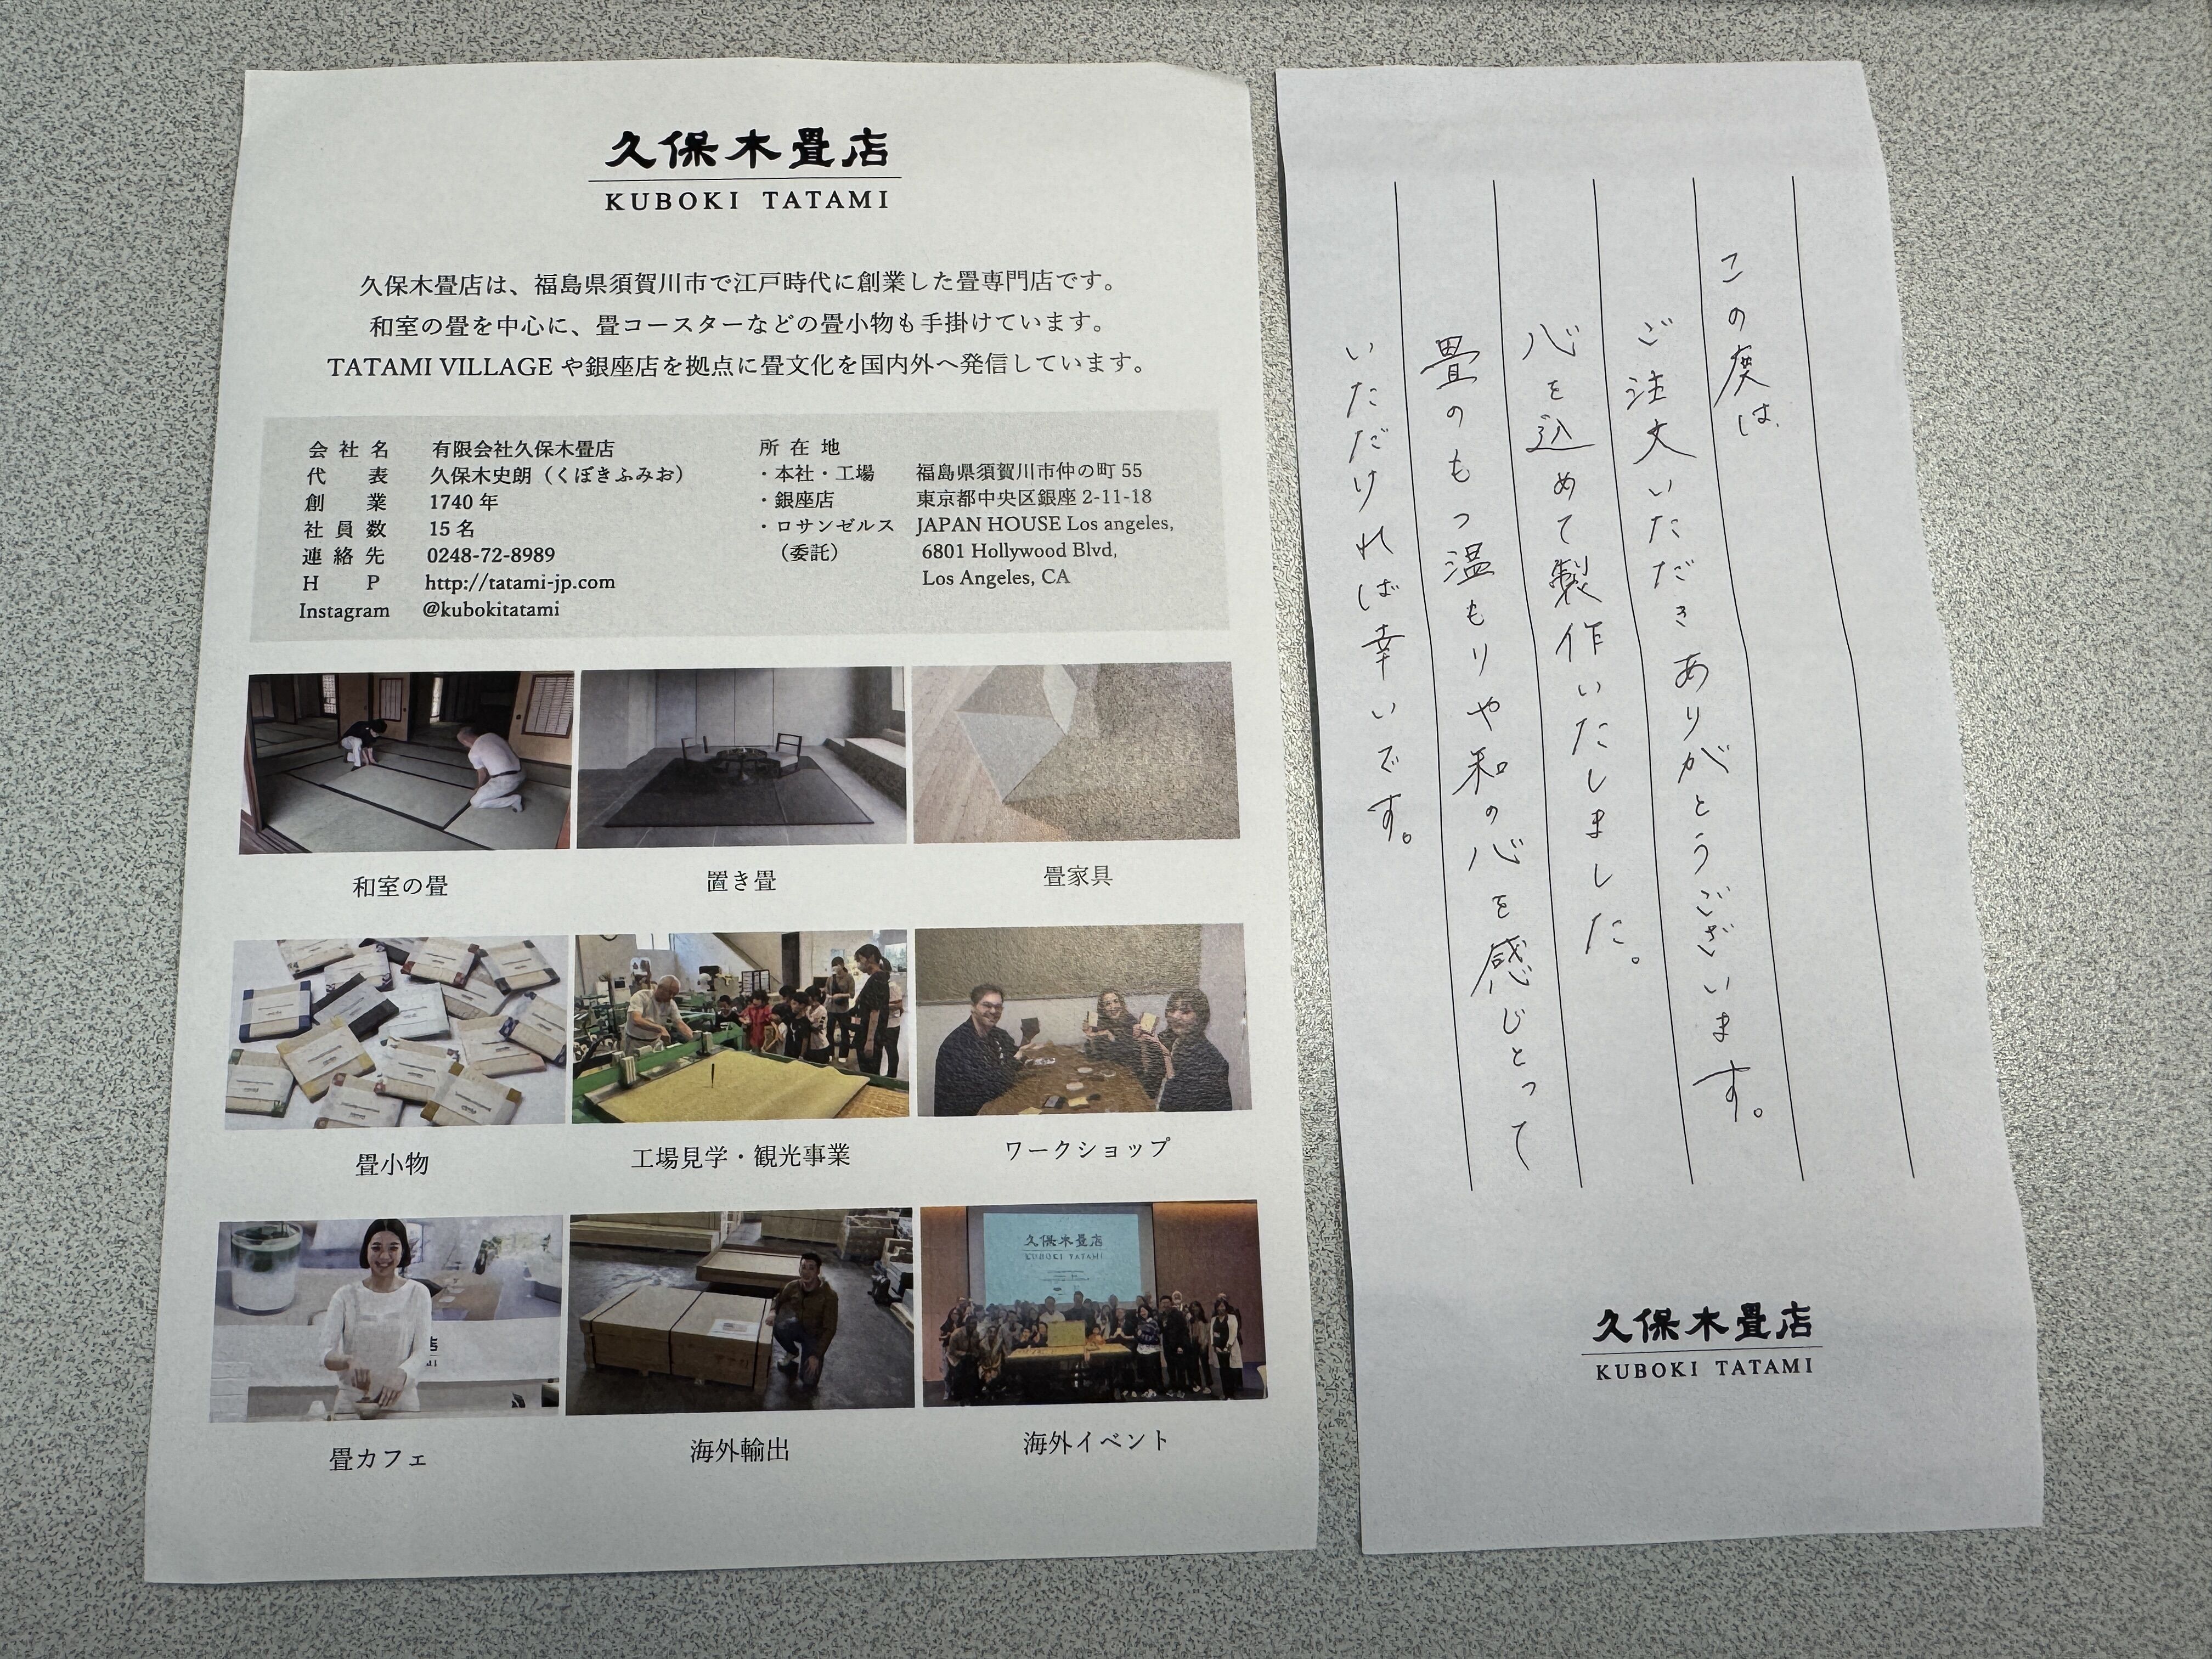 久保木畳店
KUBOKI TATAMI
久保木畳店は、福島県須賀川市で江戸時代に創業した畳専門店です。
和室の畳を中心に、畳コースターなどの畳小物も手掛けています。
TATAMI VILLAGE や銀座店を拠点に畳文化を国内外へ発信しています。
会社名 有限会社久保木畳店
代表 久保木史朗（くぼきふみお）
創業 1740 年
社員数 15 名
連絡先 0248-72-8989
HP http://tatami-jp.com
Instagram @kubokitatami
所在地
・本社・工場 福島県須賀川市仲の町 55
・銀座店 東京都中央区銀座 2-11-18
・ロサンゼルス JAPAN HOUSE Los angeles,
（委託） 6801 Hollywood Blvd,
Los Angeles, CA
和室の畳
置き畳
畳家具
畳小物
工場見学・観光事業
ワークショップ
久保木畳店
KUBOKI TATAMI
畳カフェ
海外輸出
海外イベント
この度は
ご注文いただきありがとうございます。
心を込めて製作いたしました。
畳のもつ温もりや和の心を感じとって
いただければ幸いです。
久保木畳店
KUBOKI TATAMI